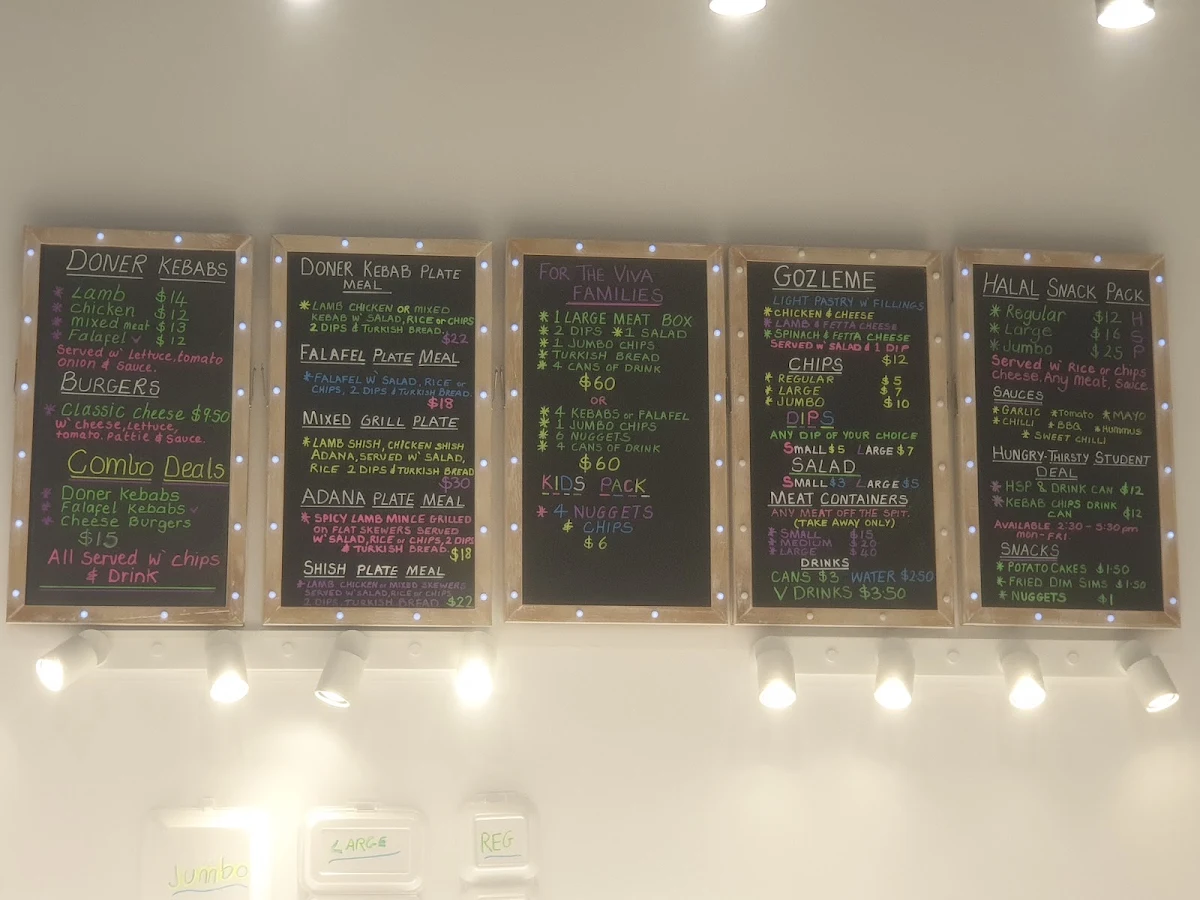 DONER KEBABS
* Lamb $14
* Chicken $12
* mixed meat $13
* Falafel ✓ $12
Served w' lettuce, tomato
onion & sauce.
BURGERS
* Classic cheese $9.50
w' cheese, lettuce,
tomato, pattie & sauce.
Combo Deals
* Doner Kebabs
* Falafel Kebabs ✓
* Cheese Burgers
$15
All served w' chips
& Drink
DONER KEBAB PLATE
MEAL
* LAMB CHICKEN OR MIXED
KEBAB W' SALAD, RICE or CHIPS
2 DIPS & TURKISH BREAD.
$22
FALAFEL PLATE MEAL
* FALAFEL W' SALAD, RICE or
CHIPS, 2 DIPS & TURKISH BREAD.
$18
MIXED GRILL PLATE
* LAMB SHISH, CHICKEN SHISH
ADANA, SERVED W' SALAD,
RICE 2 DIPS & TURKISH BREAD
$30
ADANA PLATE MEAL
* SPICY LAMB MINCE GRILLED
ON FLAT SKEWERS SERVED
W' SALAD, RICE or CHIPS, 2 DIPS
& TURKISH BREAD. $18
SHISH PLATE MEAL
* LAMB CHICKEN or MIXED SKEWERS
SERVED W' SALAD, RICE or CHIPS
2 DIPS TURKISH BREAD $22
FOR THE VIVA
FAMILIES
* 1 LARGE MEAT BOX
* 2 DIPS * 1 SALAD
* 1 JUMBO CHIPS
* TURKISH BREAD
* 4 CANS OF DRINK
$60
OR
* 4 KEBABS or FALAFEL
* 1 JUMBO CHIPS
* 6 NUGGETS
* 4 CANS OF DRINK
$60
KIDS PACK
* 4 NUGGETS
* CHIPS
$6
GOZLEME
LIGHT PASTRY W' FILLINGS
* CHICKEN & CHEESE
* LAMB & FETTA CHEESE
* SPINACH & FETTA CHEESE
SERVED W' SALAD & 1 DIP
$12
CHIPS
* REGULAR $5
* LARGE $7
* JUMBO $10
DIPS
ANY DIP OF YOUR CHOICE
SMALL $5 LARGE $7
SALAD
SMALL $3 LARGE $5
MEAT CONTAINERS
ANY MEAT OFF THE SPIT.
(TAKE AWAY ONLY)
* SMALL $15
* MEDIUM $20
* LARGE $40
DRINKS
CANS $3 WATER $2.50
V DRINKS $3.50
HALAL SNACK PACK
* Regular $12 H
* Large $16 S
* Jumbo $25 P
Served w' Rice or chips
Cheese, Any Meat, Sauce
SAUCES
* GARLIC * Tomato * MAYO
* CHILLI * BBQ * Hummus
* SWEET CHILLI
HUNGRY-THIRSTY STUDENT
DEAL
* HSP & DRINK CAN $12
* KEBAB CHIPS DRINK
CAN $12
AVAILABLE 2:30 - 5:30 pm
mon - FRI.
SNACKS
* POTATO CAKES $1.50
* FRIED DIM SIMS $1.50
* NUGGETS $1
Jumbo
LARGE
REG